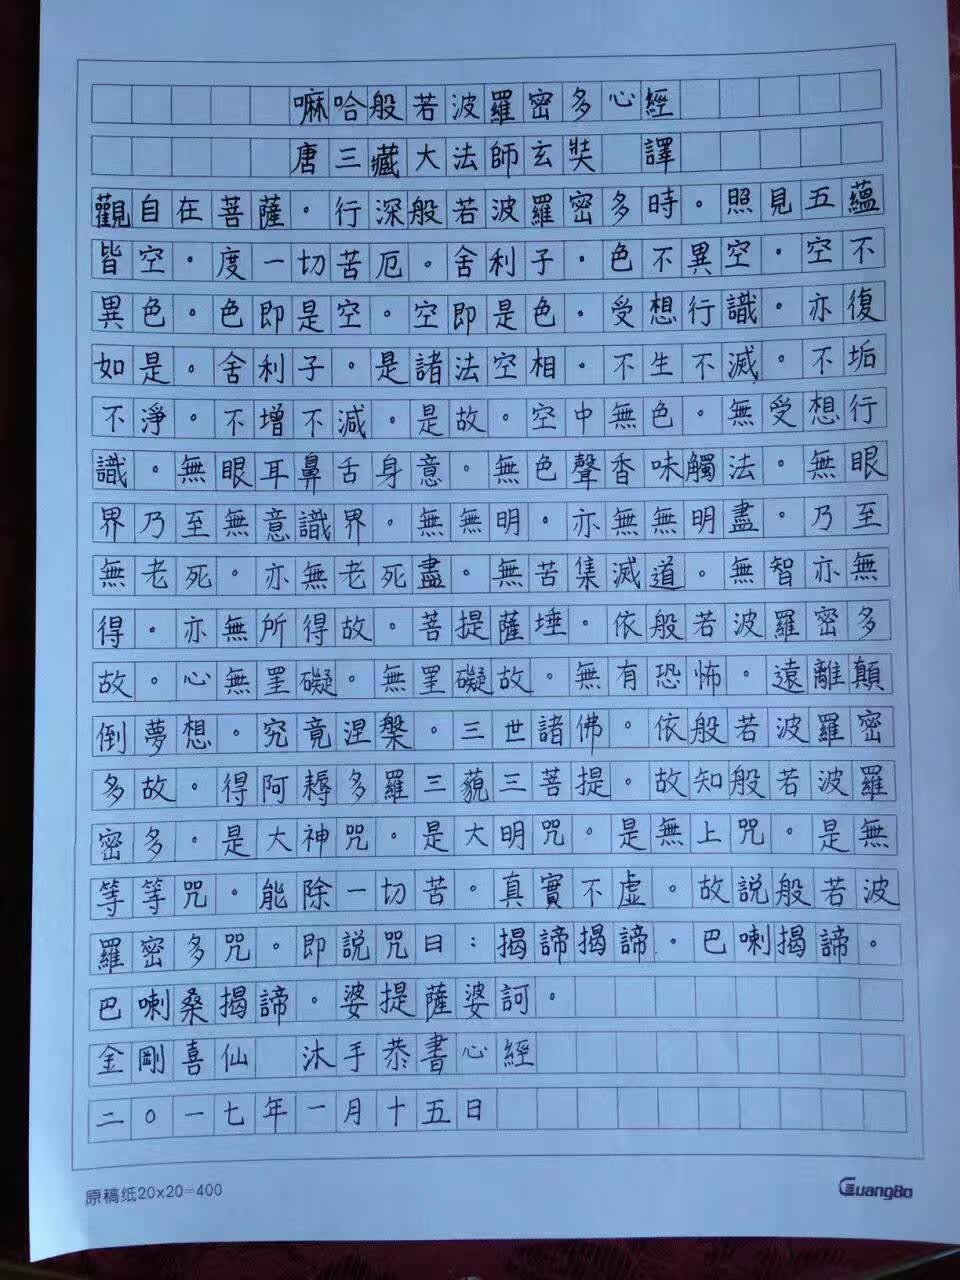 嘛哈般若波羅密多心經
唐三藏大法師玄奘 譯
觀自在菩薩。行深般若波羅密多時。照見五蘊
皆空。度一切苦厄。舍利子。色不異空。空不
異色。色即是空。空即是色。受想行識。亦復
如是。舍利子。是諸法空相。不生不滅。不垢
不淨。不增不減。是故。空中無色。無受想行
識。無眼耳鼻舌身意。無色聲香味觸法。無眼
界乃至無意識界。無無明。亦無無明盡。乃至
無老死。亦無老死盡。無苦集滅道。無智亦無
得。亦無所得故。菩提薩埵。依般若波羅密多
故。心無罣礙。無罣礙故。無有恐怖。遠離顛
倒夢想。究竟涅槃。三世諸佛。依般若波羅密
多故。得阿耨多羅三藐三菩提。故知般若波羅
密多。是大神咒。是大明咒。是無上咒。是無
等等咒。能除一切苦。真實不虛。故說般若波
羅密多咒。即說咒曰：揭諦揭諦。巴喇揭諦。
巴喇桑揭諦。婆提薩婆訶。
金剛喜仙 沐手恭書心經
二〇一七年一月十五日
原稿纸20x20=400 GuangBo